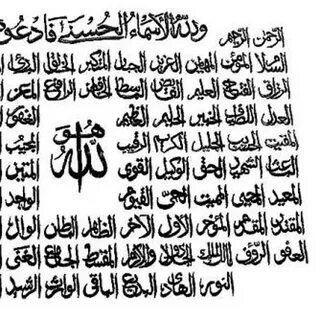 ولله الأسماء الحسنى فادعوه
الرحمن الرحيم
السلام المؤمن المهيمن العزيز الجبار المتكبر الخالق البارئ
الرزاق الفتاح العليم القابض الباسط الخافض الرافع المعز
العدل اللطيف الخبير الحليم العظيم الغفور
المقيت الحسيب الجليل الكريم الرقيب المجيب
هو
الله
الباعث الشهيد الحق الوكيل القوي المتين
المعيد المحيي المميت الحي القيوم الواجد
المقتدر المقدم المؤخر الأول الآخر الظاهر الباطن الوالي
العفو الرؤف مالك الملك ذو الجلال والإكرام المقسط الجامع الغني
النور الهادي البديع الباقي الوارث الرشيد